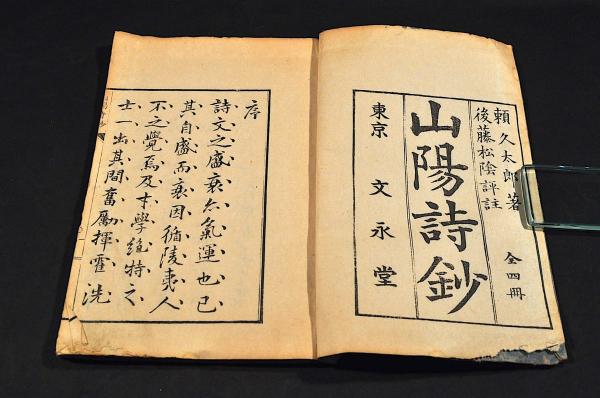 頼久太郎著
後藤松陰評註
全四冊
山陽詩鈔
東京 文永堂
序
詩文之盛衰亦氣運也已
其自盛而衰因循陵夷人
不之覺焉及才學雄特之
士一出其間奮勵揮霍洗